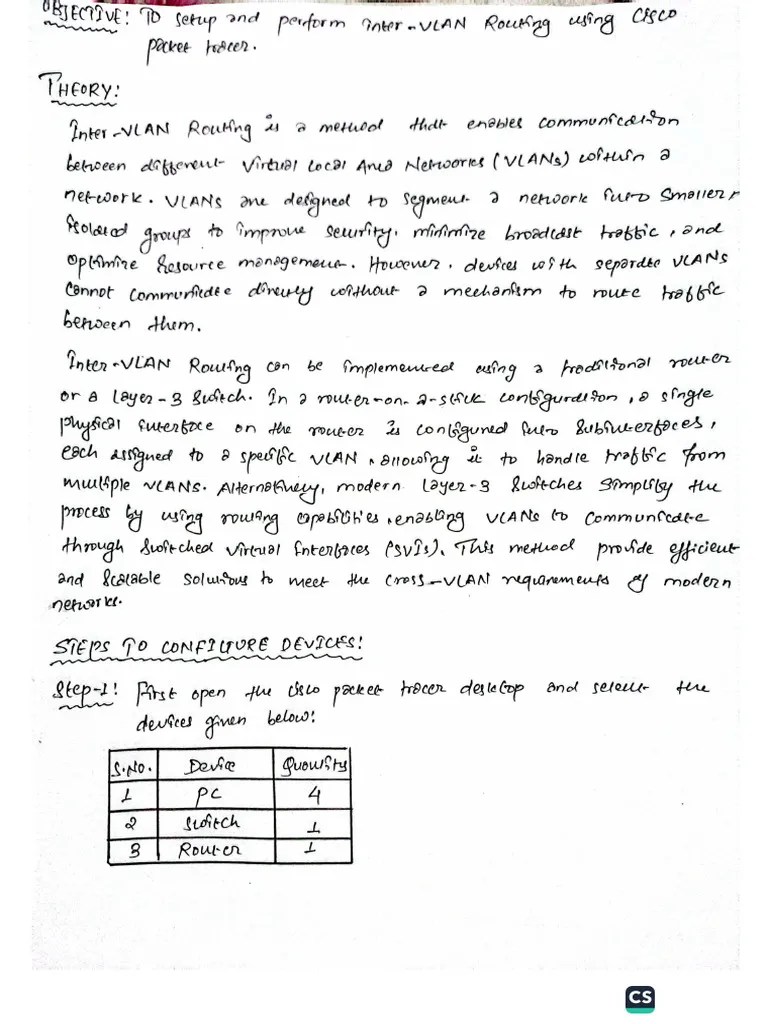 OBJECTIVE: To setup and perform inter-VLAN Routing using CISCO
packet tracer.
THEORY:
Inter-VLAN Routing is a method that enables communication
between different Virtual Local Area Networks (VLANs) within a
network. VLANs are designed to segment a network into smaller,
isolated groups to improve security, minimize broadcast traffic, and
optimize resource management. However, devices with separate VLANs
cannot communicate directly without a mechanism to route traffic
between them.
Inter-VLAN Routing can be implemented using a traditional router
or a layer-3 switch. In a router-on-a-stick configuration, a single
physical interface on the router is configured into subinterfaces,
each assigned to a specific VLAN, allowing it to handle traffic from
multiple VLANs. Alternatively, modern layer-3 switches simplify the
process by using routing capabilities, enabling VLANs to communicate
through switched virtual interfaces (SVIs). This method provide efficient
and scalable solutions to meet the cross-VLAN requirements of modern
networks.
STEPS TO CONFIGURE DEVICES:
Step-1: First open the cisco packet tracer desktop and select the
devices given below:
S.No. Device Quantity
1 PC 4
2 Switch 1
3 Router 1
CS